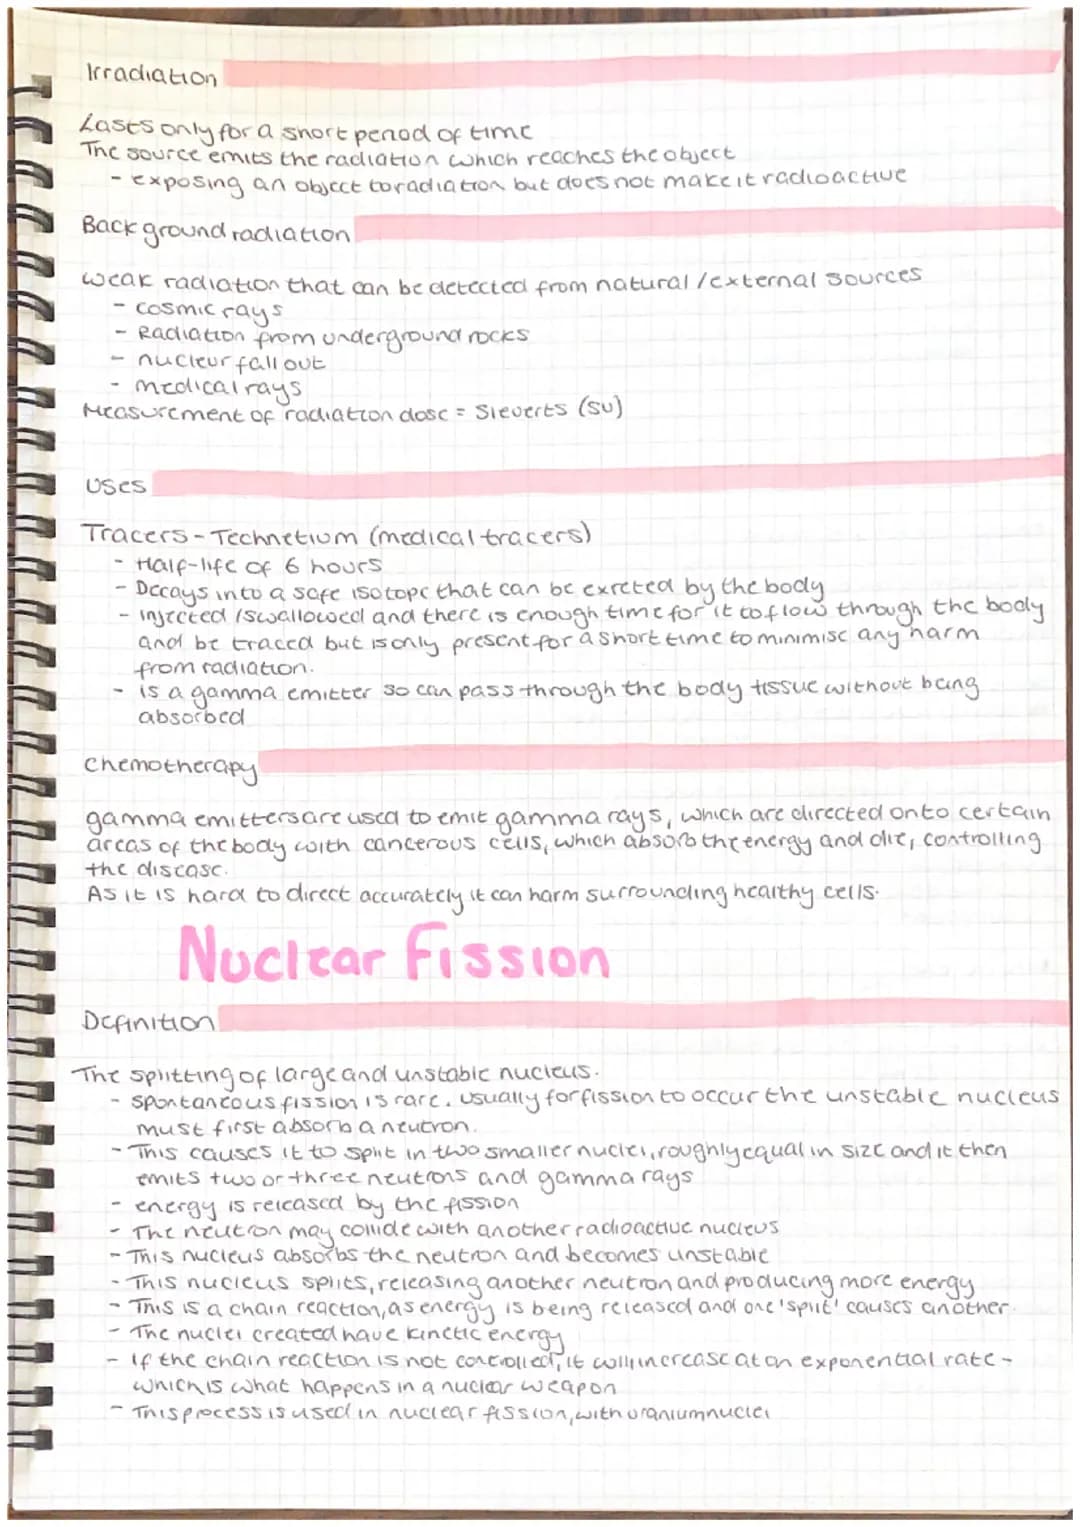 Irradiation
Lasts only for a short period of time
The source emits the radiation which reaches the object
- exposing an object to radiation but does not make it radioactive
Background radiation
weak radiation that can be detected from natural / external sources
- cosmic rays
- Radiation from underground rocks
- nucleur fall out
- medical rays
Measurement of radiation dose = Sieverts (Sv)
Uses
Tracers - Technetium (medical tracers)
- Half-life of 6 hours
- Decays into a safe isotope that can be excreted by the body
- injected / swallowed and there is enough time for it to flow through the body
and be traced but is only present for a short time to minimise any harm
from radiation.
- is a gamma emitter so can pass through the body tissue without being
absorbed
Chemotherapy
gamma emitters are used to emit gamma rays, which are directed onto certain
areas of the body with cancerous cells, which absorb the energy and die, controlling
the disease.
As it is hard to direct accurately it can harm surrounding healthy cells.
Nuclear Fission
Definition
The splitting of large and unstable nucleus.
- spontaneous fission is rare. Usually for fission to occur the unstable nucleus
must first absorb a neutron.
- This causes it to split in two smaller nuclei, roughly equal in size and it then
emits two or three neutrons and gamma rays
- energy is released by the fission
- The neutron may collide with another radioactive nucleus
- This nucleus absorbs the neutron and becomes unstable
- This nucleus splits, releasing another neutron and producing more energy
- This is a chain reaction, as energy is being released and one 'split' causes another.
- The nuclei created have kinetic energy
- If the chain reaction is not controlled, it will increase at an exponential rate -
which is what happens in a nuclear weapon
- This process is used in nuclear fission, with uranium nuclei